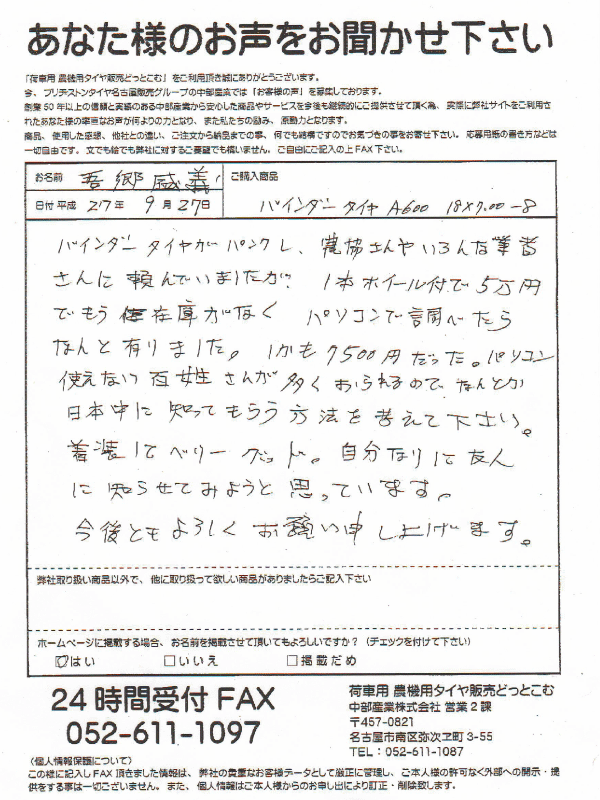 あなた様のお声をお聞かせ下さい
「荷車用 農機用タイヤ販売どっとこむ」をご利用頂き誠にありがとうございます。
今、ブリヂストンタイヤ名古屋販売グループの中部産業では「お客様の声」を募集しております。
創業50年以上の信頼と実績のある中部産業から安心した商品やサービスを今後も継続的にご提供させて頂く為、実際に弊社サイトをご利用さ
れたあなた様の率直なお声が何よりの力となり、また私たちの励み、原動力となります。
商品、使用した感想、他社との違い、ご注文から納品までの事、何でも結構ですのでお気づきの事をお寄せ下さい。応募用紙の書き方などは
一切自由です。文でも絵でも弊社に対するご要望でも構いません。ご自由にご記入の上FAX下さい。
お名前 吾郷 威義 ご購入商品
日付 平成 27年 9月27日 バインダー タイヤ A600 18×7.00-8
バインダー タイヤがパンクし、農協さんやいろんな業者
さんに頼んでいましたが、1本ホイール付で5万円
でもう在庫がなく パソコンで調べたら
なんと有りました。しかも7500円だった。パソコン
使えない百姓さんが多くおられるので なんとか
日本中に知ってもらう方法を考えて下さい。
着装してベリーグッド。自分なりに友人
に知らせてみようと思っています。
今後ともよろしくお願い申し上げます。
弊社取り扱い商品以外で、他に取り扱って欲しい商品がありましたらご記入下さい
ホームページに掲載する場合、お名前を掲載させて頂いてもよろしいですか?(チェックを付けて下さい)
☑はい □いいえ □掲載だめ
24時間受付FAX
052-611-1097
荷車用 農機用タイヤ販売どっとこむ
中部産業株式会社 営業2課
〒457-0821
名古屋市南区弥次ヱ町3-55
TEL:052-611-1087
(個人情報保護について)
この様に記入しFAX頂きました情報は、弊社の貴重なお客様データとして厳正に管理し、ご本人様の許可なく外部への開示・提
供をする事は一切ございません。また、個人情報はご本人様からのお申し出により訂正・削除致します。